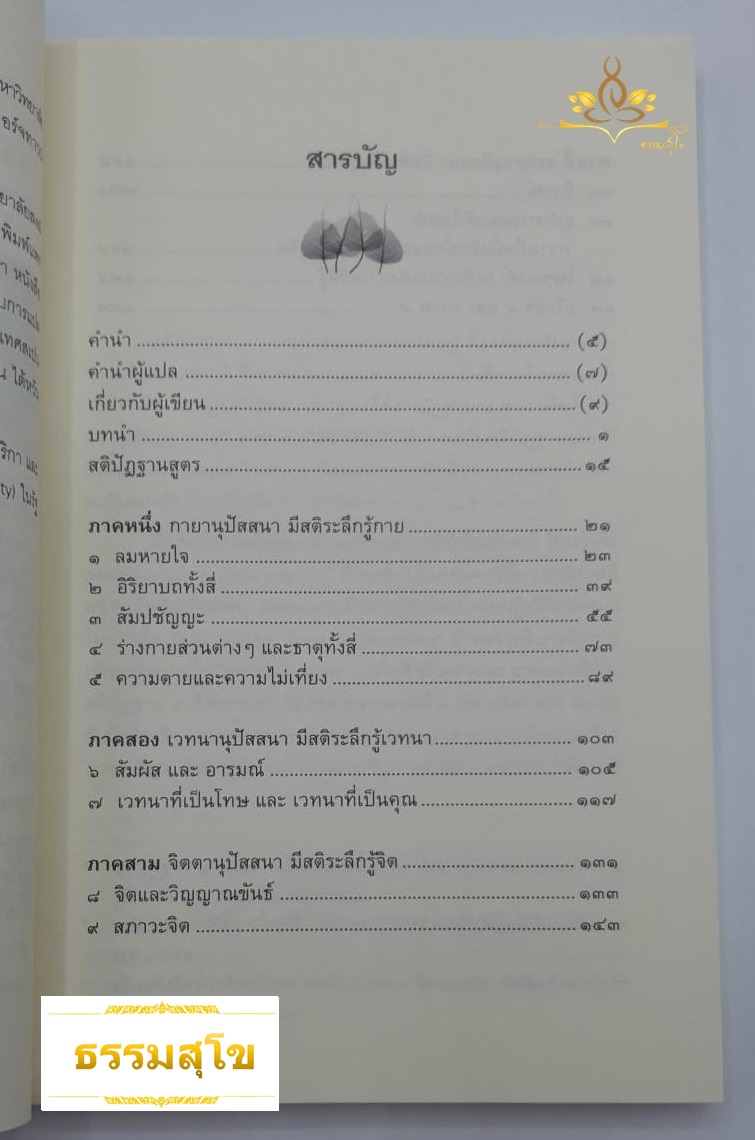 ธรรมสุโข
สารบัญ
คำนำ ........ (๕)
คำนำผู้แปล ........ (๗)
เกี่ยวกับผู้เขียน ........ (๙)
บทนำ ........ ๑
สติปัฏฐานสูตร ........ ๑๕
ภาคหนึ่ง กายานุปัสสนา มีสติระลึกรู้กาย ........ ๒๑
๑ ลมหายใจ ........ ๒๓
๒ อิริยาบถทั้งสี่ ........ ๓๙
๓ สัมปชัญญะ ........ ๕๕
๔ ร่างกายส่วนต่างๆ และธาตุทั้งสี่ ........ ๗๓
๕ ความตายและความไม่เที่ยง ........ ๘๙
ภาคสอง เวทนานุปัสสนา มีสติระลึกรู้เวทนา ........ ๑๐๓
๖ สัมผัส และ อารมณ์ ........ ๑๐๕
๗ เวทนาที่เป็นโทษ และ เวทนาที่เป็นคุณ ........ ๑๑๗
ภาคสาม จิตตานุปัสสนา มีสติระลึกรู้จิต ........ ๑๓๑
๘ จิตและวิญญาณขันธ์ ........ ๑๓๓
๙ สภาวะจิต ........ ๑๔๓
ธรรมสุโข